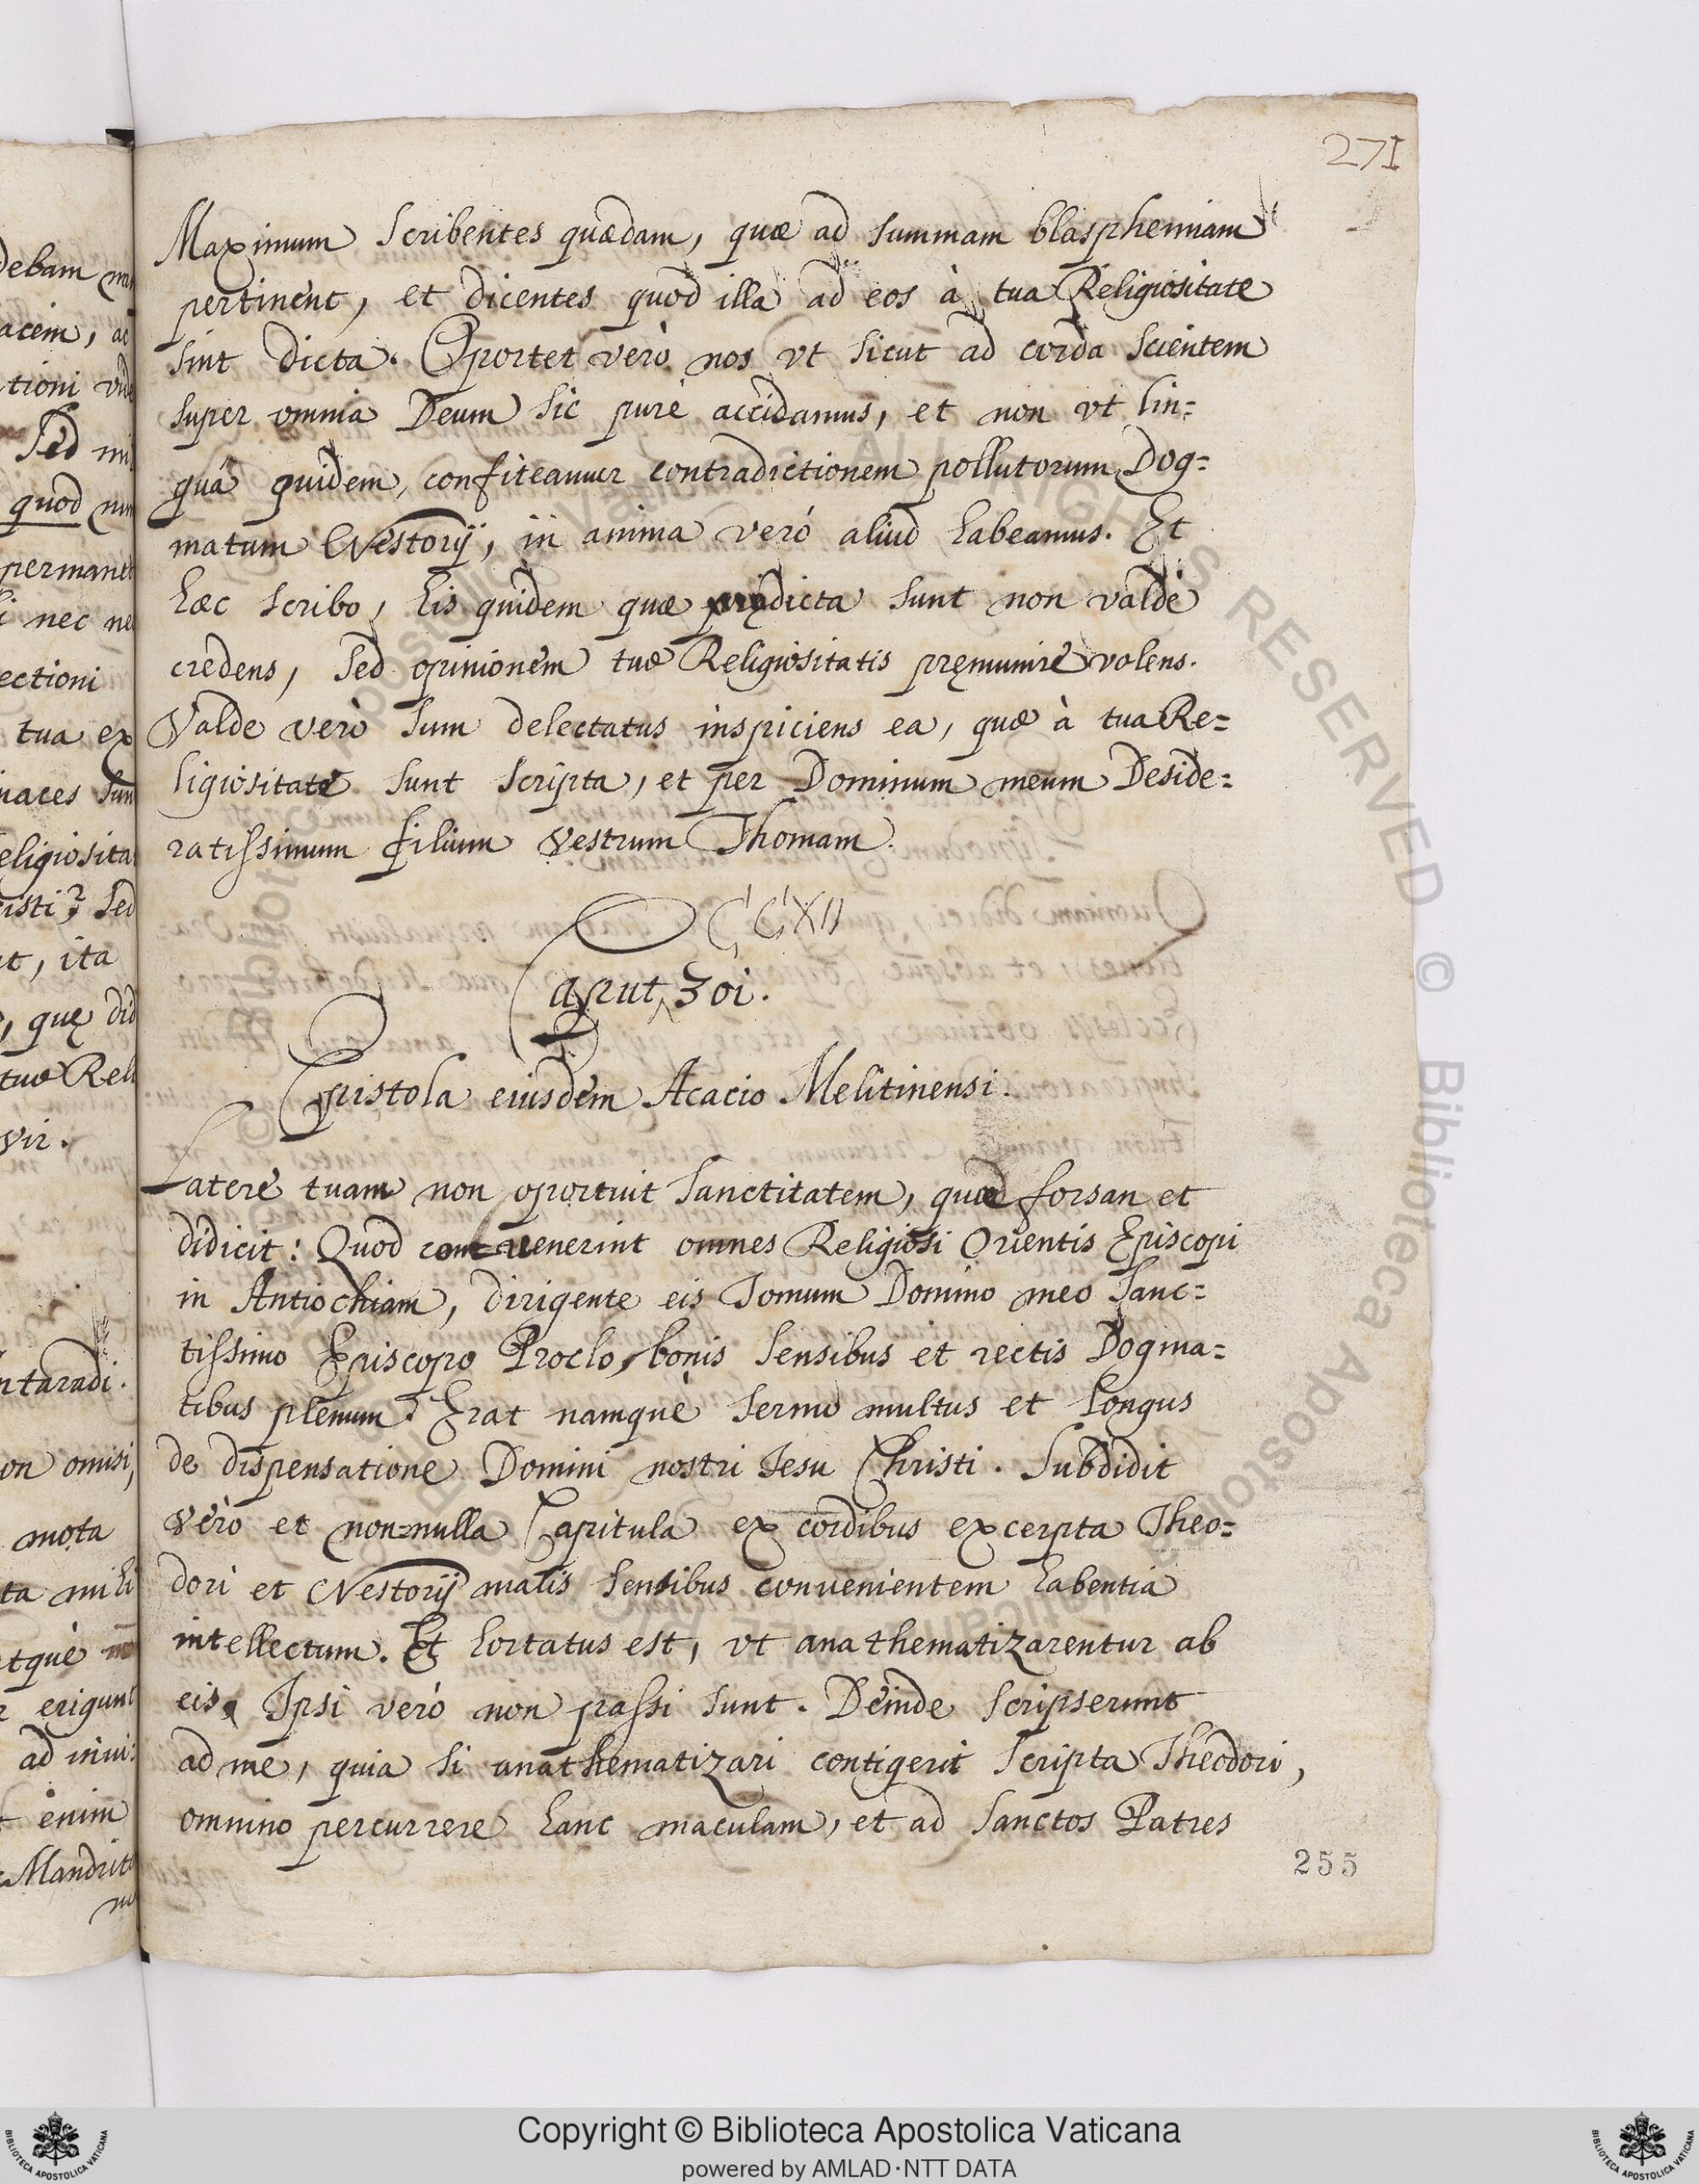 271
Maximum scribentes quædam, quæ ad summam blasphemiam
pertinent, et dicentes quod illa ad eos à tua Religiositate
sint dicta. Oportet verò nos vt sicut ad corda scientem
super omnia Deum sic purè accidamus, et non vt lin=
guâ quidem, confiteamur contradictionem pollutorum Dog=
matum Nestorij, in anima verò aliud habeamus. Et
hæc scribo, his quidem quæ prædicta sunt non valdè
credens, sed opinionem tuæ Religiositatis pręmunire volens.
Valde verò sum delectatus inspiciens ea, quæ à tua Re=
ligiositate sunt scripta, et per Dominum meum Deside=
ratissimum filium vestrum Thomam.
CCXII
Caput 301.
Epistola eiusdem Acacio Melitinensi.
Latere tuam non oportuit sanctitatem, quæ forsan et
didicit: Quod conuenerint omnes Religiosi Orientis Episcopi
in Antiochiam, dirigente eis Tomum Domino meo Sanc=
tissimo Episcopo Proclo, bonis sensibus et rectis Dogma=
tibus plenum. Erat namquè sermo multus et longus
de dispensatione Domini nostri Iesu Christi. Subdidit
verò et non=nulla Capitula ex cordibus excerpta Theo=
dori et Nestorij malis sensibus conuenientem habentia
intellectum. Et hortatus est, vt anathematizarentur ab
eis. Ipsi verò non passi sunt. Deinde scripserunt
ad me, quia si anathematizari contigerit scripta Theodori,
omnino percurrere hanc maculam, et ad Sanctos Patres
255
Copyright © Biblioteca Apostolica Vaticana
powered by AMLAD·NTT DATA